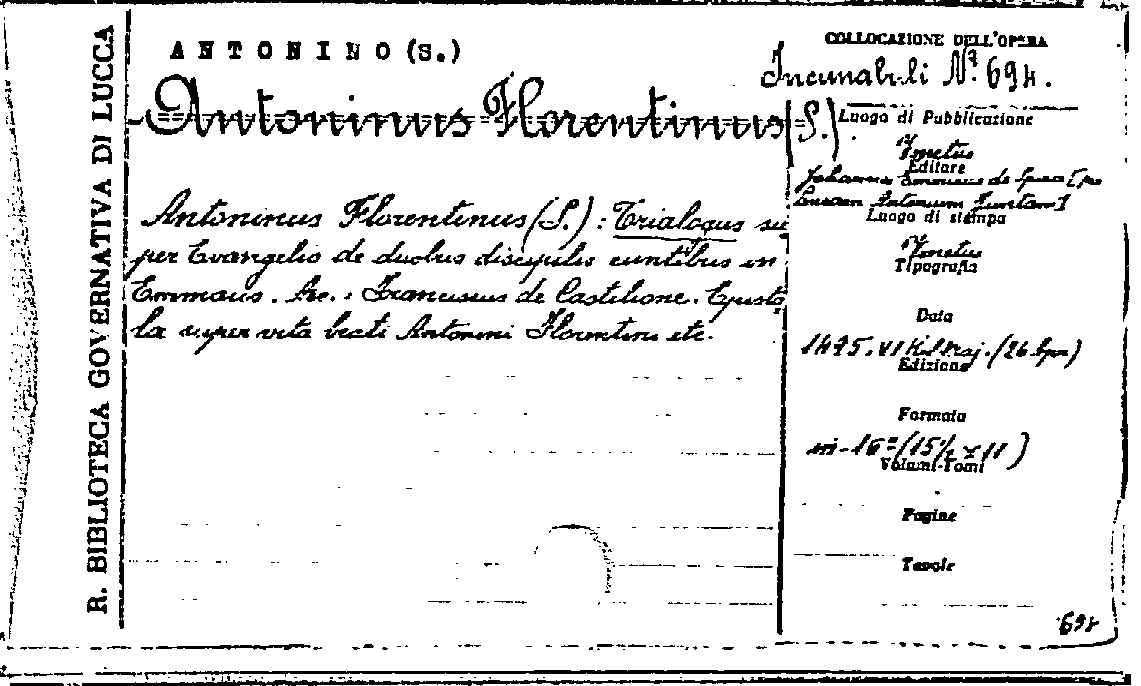 R. BIBLIOTECA GOVERNATIVA DI LUCCA
ANTONINO (S.)
Antoninus Florentinus (S.)
Antoninus Florentinus (S.) : Trialogus su
per Evangelio de duobus discipulis euntibus in
Emmaus. Acc.: Franciscus de Castilione. Episto
la super vita beati Antonini Florentini etc.
COLLOCAZIONE DELL'OPERA
Incunabuli N.° 694.
Luogo di Pubblicazione
Venetiis
Editore
Johannes Emericus de Spira [pro
Lucam Antonium Juntam]
Luogo di stampa
Venetiis
Tipografia
Data
1495. VI Kal. Maj. (26 Apr.)
Edizione
Formato
in-16° (15½ x 11)
Volumi-Tomi
Pagine
Tavole
694